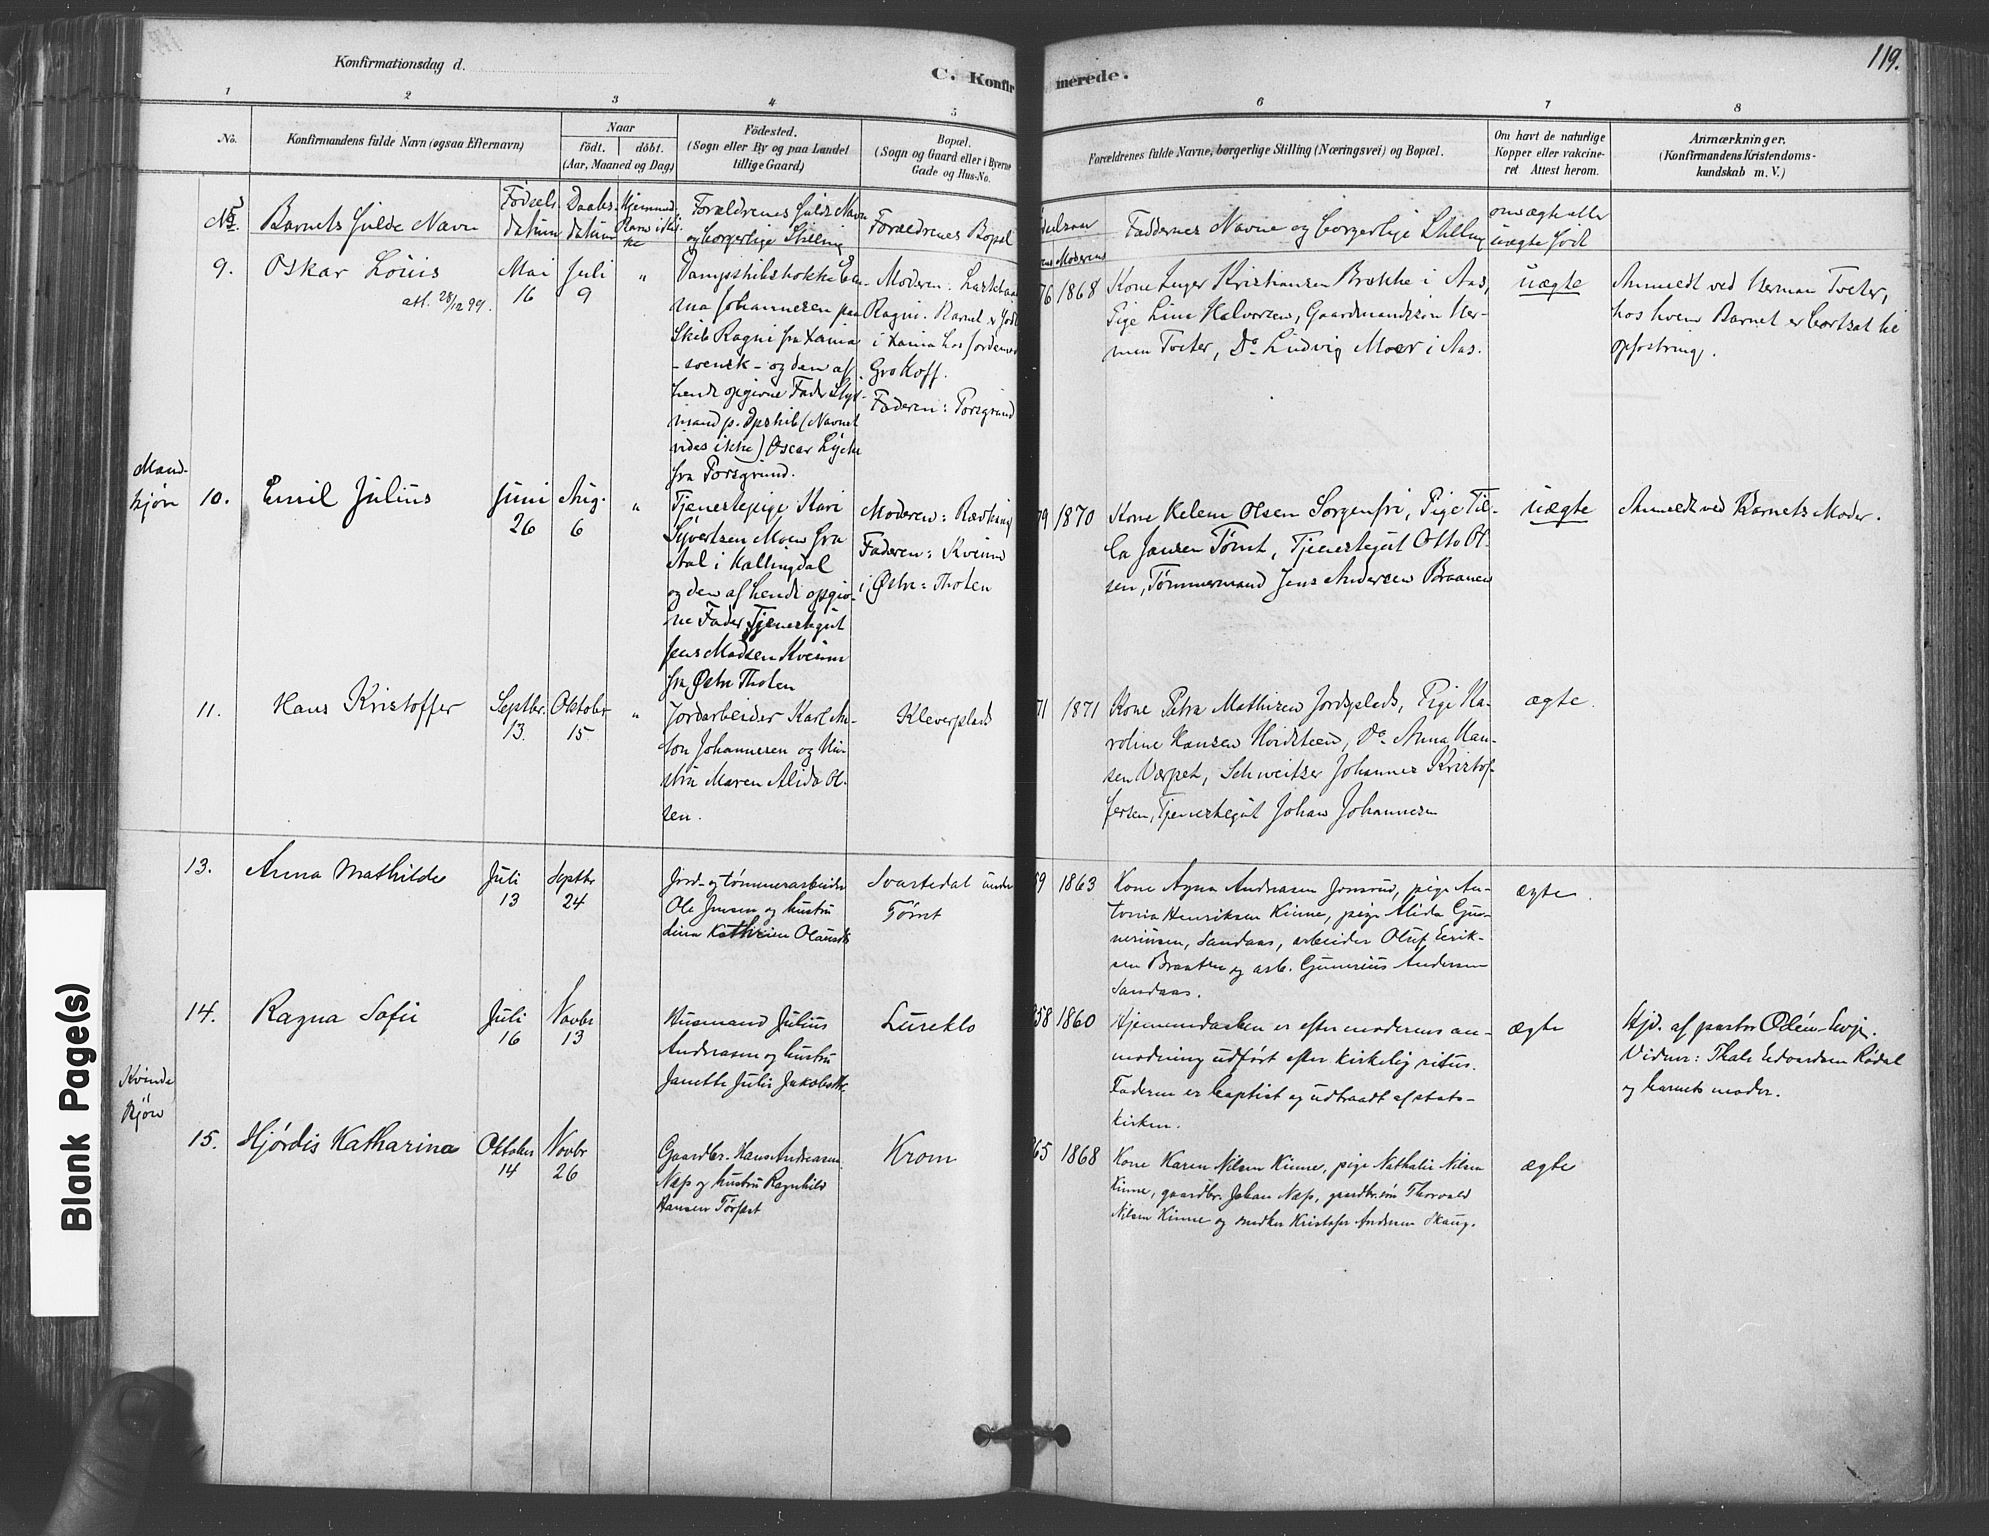 119.
Konfirmationsdag d.
C. Konfir merede.
1 2 3 4 5 6 7 8
No.
Konfirmandens fulde Navn (ogsaa Efternavn)
Naar
födt. döbt.
(Aar, Maaned og Dag)
Födested.
(Sogn eller By og paa Landet
tillige Gaard)
Bopæl.
(Sogn og Gaard eller i Byerne
Gade og Hus-No.
Forældrenes fulde Navne, borgerlige Stilling (Næringsvei) og Bopæl.
Om havt de naturlige
Kopper eller vakcine-
ret Attest herom.
Anmærkninger.
(Konfirmandens Kristendoms-
kundskab m. V.)
Barnets fulde Navn
Fødsels
datum
Daabs
datum
Forældrenes fulde Navn
og borgerlige Stilling
Forældrenes Bopæl
Moderens
Faddernes Navne og borgerlige Stilling
om ægte eller
uægte født
Mand-
kjøn
9.
Oskar Louis
att. 28/12 99.
Mai
16
Juli
9
"
Dampskibskokke
Johannesen paa
Skib Ragni fra Xania
- svensk - og den af
hende opgivne Fader Styr-
mand p. Dpskib (Navnet
vides ikke) Oscar Lycke
fra Porsgrund.
Moderen:
Ragni. Barnet er født
i Xania hos Jordemod
Gro Koff.
Faderen: Porsgrund
76 1868
Kone Inger Kristiansen Brække i Aas,
Pige Lina Halvorsen, Gaardmandssøn Her-
man Tveter, Do Ludvig Moer i Aas.
uægte
Anmeldt ved Herman Tveter,
hos hvem Barnet er bortsat til
opfostring.
10.
Emil Julius
Juni
26
Aug.
6
"
Tjenestepige Kari
Syvertsen Moen fra
Aal i Hallingdal
og den af hende opgiv-
ne Fader Tjenestegut
Jens Madsen Kvem
fra Østre Thoten
Moderen: Revhaug
Faderen: Kvem
i Østre Thoten
79 1870
Kone Helene Olsen Sorgenfri, Pige Til-
la Jansen Tømt, Tjenestegut Otto Ol-
sen, Tømmermand Jens Andersen Braanen
uægte
Anmeldt ved Barnets Moder.
11.
Hans Kristoffer
Septbr.
13.
Oktober
15.
"
Jordarbeider Karl An-
ton Johannesen og Hu-
stru Maren Alida Ol-
sen.
Kleverplads
71 1871
Kone Petra Mathisen Jordsplads, Pige Ka-
roline Hansen Hvidsteen, Do Anna Han-
sen Værpet, Schweitser Johannes Kristof-
fersen, Tjenestegut Johan Johannesen
ægte.
Kvinde
kjøn
13.
Anna Mathilde
Juli
13
Septbr
24
Jord- og tømmerarbeider
Ole Jensen og hustru
Lina Kathrine Olausdt
Svartedal under
Tømt
69 1863
Kone Agna Andreasen Jonsrud, pige An-
tonia Henriksen Kinne, pige Alida Gun-
neriusen, Sandaas, arbeider Oluf Erik-
sen Braaten og arb. Gunerius Andersen
Sandaas.
ægte.
14.
Ragna Sofie
Juli
16
Novbr
13
Husmand Julius
Andreasen og hustru
Janette Julie Jakobsdt
Lureklo
858 1860
Hjemmedaaben er efter moderens an-
modning udført efter kirkelig ritus.
Faderen er baptist og udtraadt af stats-
kirken.
ægte
Hjd. af pastor Odén-Evje.
Vidner: Thale Edvardsen Rødal
og barnets moder.
15.
Hjørdis Katharina
Oktober
14
Novbr
26
Gaardbr. Hans Andreasen
Næs og hustru Ragnhild
Hansen Tørfæst
Krom
865 1868
Kone Karen Nilsen Kinne, pige Nathalie Nilsen
Kinne, gaardbr. Johan Næs, gaardbr.søn Thorvald
Nilsen Kinne og snedker Kristofer Andersen Skaug.
ægte
Blank Page(s)